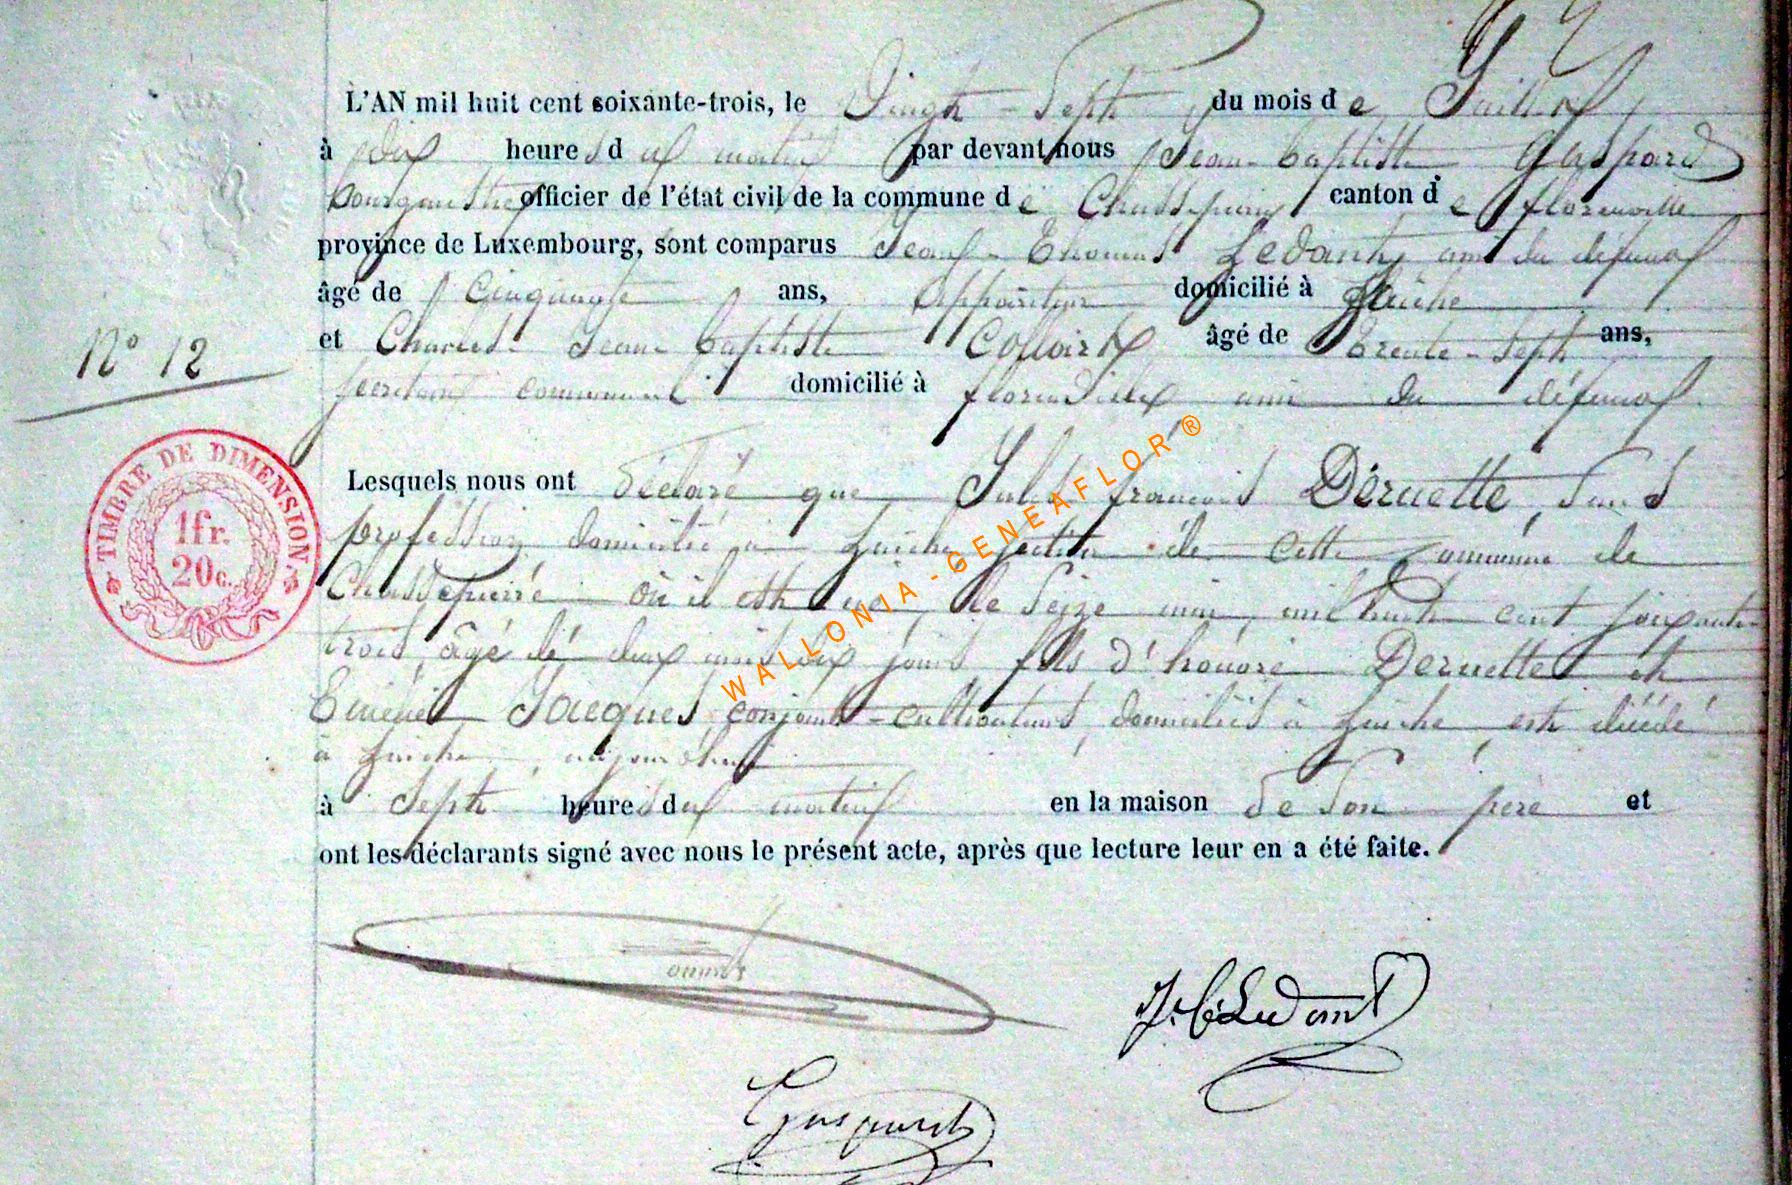 L'AN mil huit cent soixante-trois, le Vingt-Sept du mois de Juillet
à dix heures du matin par devant nous Jean-baptiste Gaspard
bourgmestre officier de l'état civil de la commune de Chassepierre canton de florenville
province de Luxembourg, sont comparus Jean-Thomas Ledant, ami du défunt
âgé de Cinquante ans, appariteur domicilié à
et Charles-Jean-baptiste Collart âgé de trente-Sept ans,
secrétaire communal domicilié à florenville ami du défunt
N° 12
TIMBRE DE DIMENSION.
1fr.
20c.
Lesquels nous ont déclaré que Jules françois Déruette, Sans
profession domicilié à section de cette Commune de
Chassepierre où il est né, le Seize mai, mil huit cent soixante
trois, âgé de deux mois dix jours fils d'honoré Deruette et
Jacques, conjoints-cultivateurs, domiciliés à est décédé
à aujourd'hui
à Sept heures du matin en la maison de Son père et
ont les déclarants signé avec nous le présent acte, après que lecture leur en a été faite.
WALLONIA-GENEAFLOR®
Ledant
Gaspard